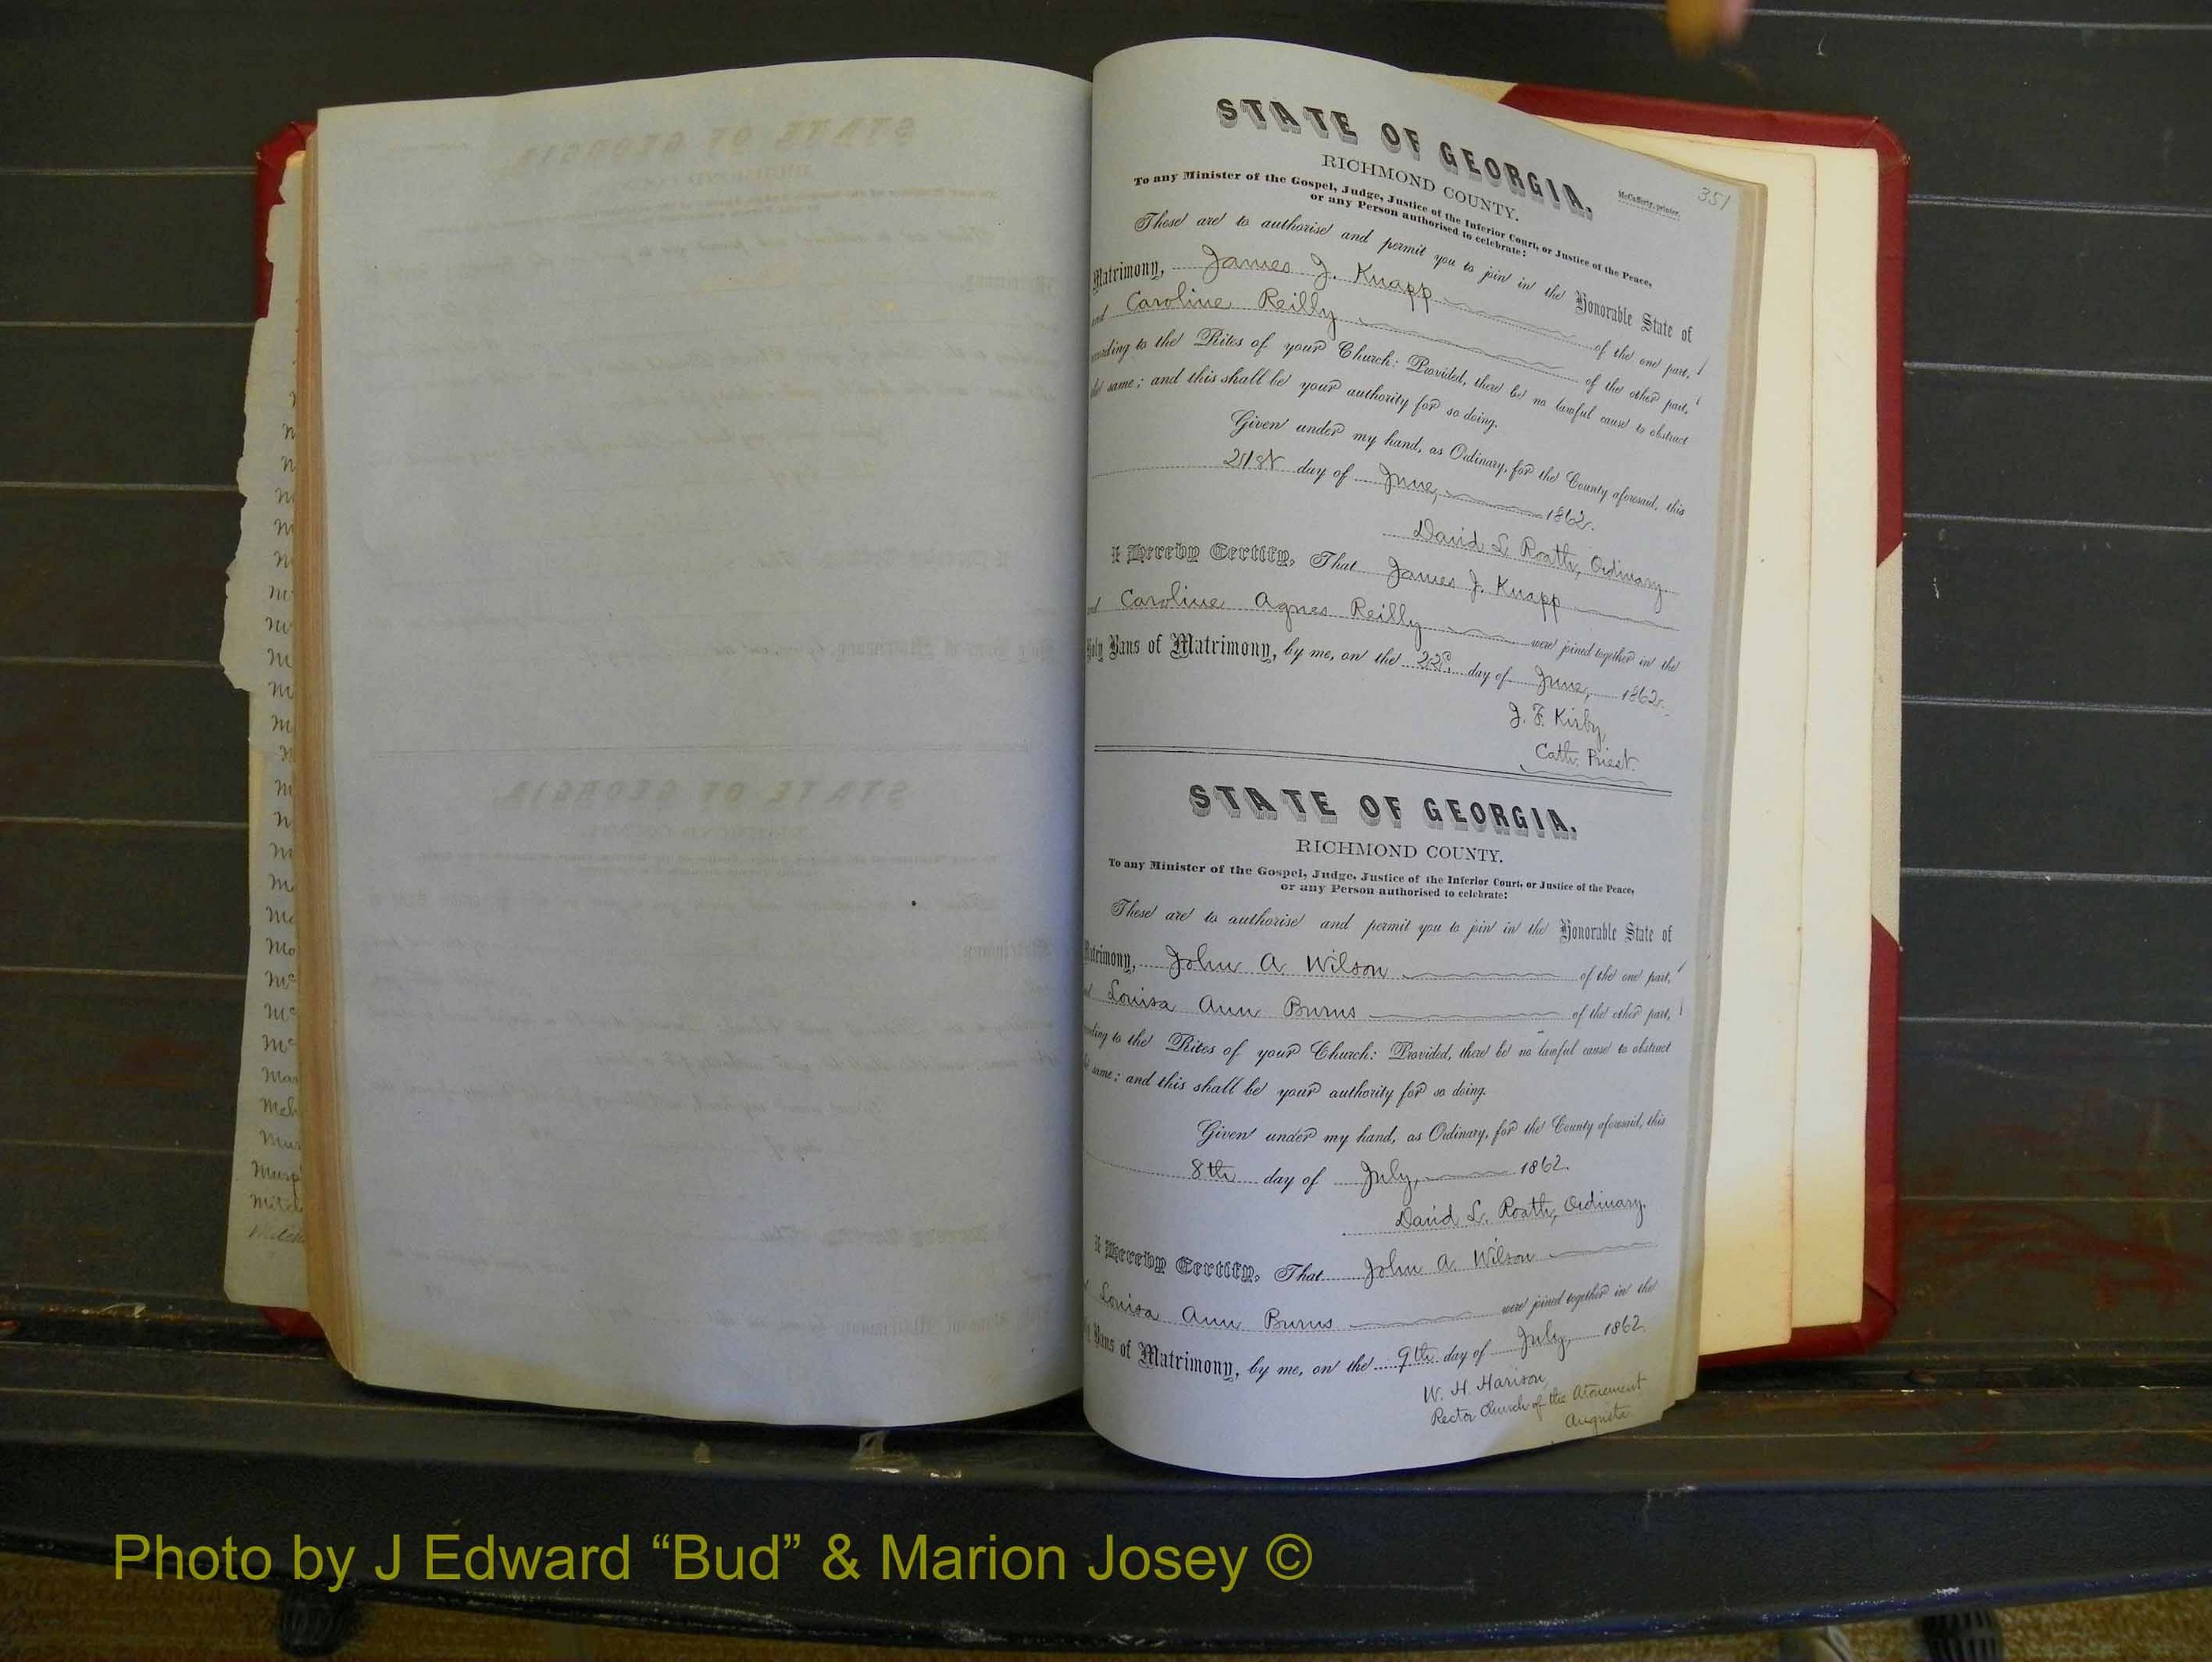 351
STATE OF GEORGIA.
McCafferty, printer.
RICHMOND COUNTY.
To any Minister of the Gospel, Judge, Justice of the Inferior Court, or Justice of the Peace,
or any Person authorised to celebrate:
These are to authorise and permit you to join in the Honorable State of
Matrimony, James J. Knapp of the one part,
and Caroline Reilly of the other part,
according to the Rites of your Church: Provided, there be no lawful cause to obstruct
the same; and this shall be your authority for so doing.
Given under my hand, as Ordinary, for the County aforesaid, this
21st day of June, 1862.
David L. Roath, Ordinary.
I Hereby Certify, That James J. Knapp
and Caroline Agnes Reilly were joined together in the
Holy Bans of Matrimony, by me, on the 22d. day of June, 1862.
J. F. Kirby,
Cath. Priest.
STATE OF GEORGIA.
RICHMOND COUNTY.
To any Minister of the Gospel, Judge, Justice of the Inferior Court, or Justice of the Peace,
or any Person authorised to celebrate:
These are to authorise and permit you to join in the Honorable State of
Matrimony, John A. Wilson of the one part,
Louisa Ann Burns of the other part,
to the Rites of your Church: Provided, there be no lawful cause to obstruct
same; and this shall be your authority for so doing.
Given under my hand, as Ordinary, for the County aforesaid, this
8th day of July, 1862.
David L. Roath, Ordinary.
I Hereby Certify, That John A. Wilson
Louisa Ann Burns were joined together in the
Bans of Matrimony, by me, on the 9th day of July, 1862.
W. H. Harison,
Rector Church of the Atonement
Augusta
Photo by J Edward “Bud” & Marion Josey ©